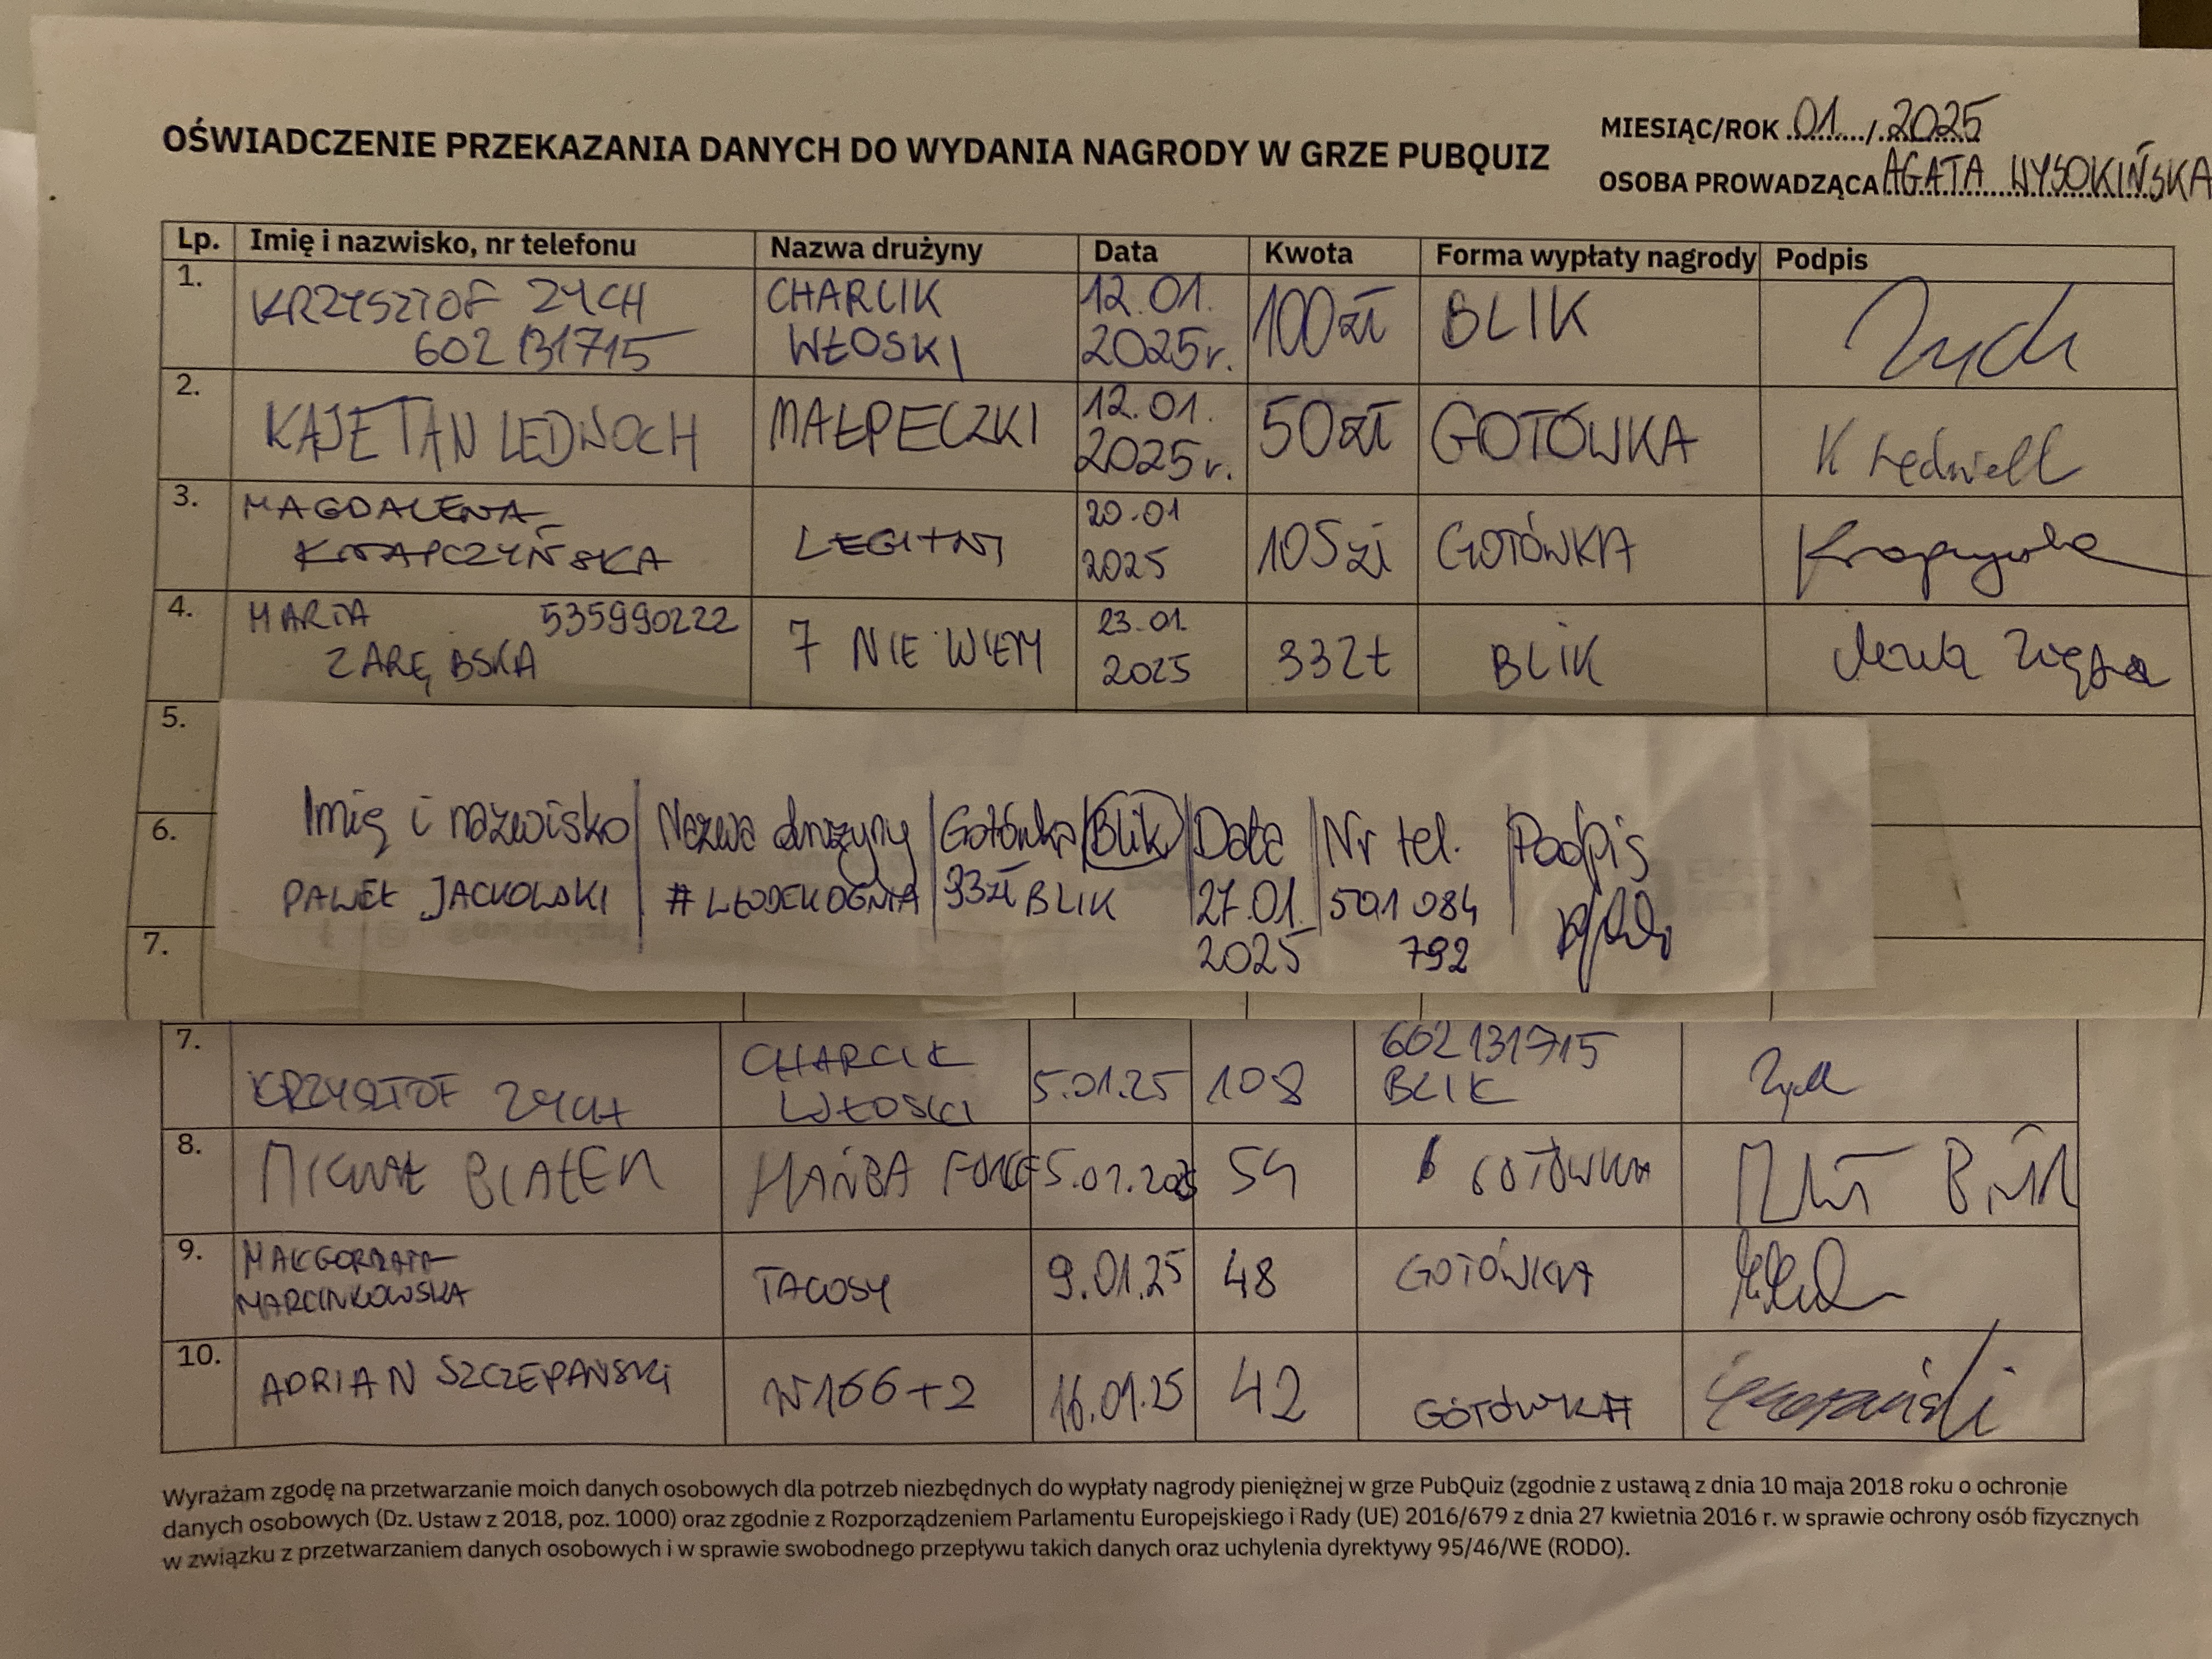 OŚWIADCZENIE PRZEKAZANIA DANYCH DO WYDANIA NAGRODY W GRZE PUBQUIZ
MIESIĄC/ROK 01 / 2025
OSOBA PROWADZĄCA AGATA WYSOKIŃSKA
Lp. Imię i nazwisko, nr telefonu Nazwa drużyny Data Kwota Forma wypłaty nagrody Podpis
1. KRZYSZTOF ZYCH CHARCIK 12.01. 100zł BLIK Zych
602 131715 WŁOSKI 2025r.
2. KAJETAN LEDWOCH MAŁPECZKI 12.01. 50zł GOTÓWKA
2025r.
3. MAGDALENA LEGITNI 20.01 105zł GOTÓWKA
KNAPCZYŃSKA 2025
4. MARTA 535990222 7 NIE WIEM 23.01. 33Zł BLIK
ZARĘBSKA 2025
5.
6.
7.
Imię i nazwisko Nazwa drużyny Gotówka/Blik Data Nr tel. Podpis
PAWEŁ JACKOWSKI 93zł BLIK 27.01. 501 084
2025 792
7. KRZYSZTOF ZYCH CHARCIK 5.01.25 108 602131715 Zych
WŁOSKI BLIK
8. MICHAŁ BIAŁEK HAŃBA FORCE 5.01.2025 54 GOTÓWKA
9. MAŁGORZATA TACOSY 9.01.25 48 GOTÓWKA
MARCINKOWSKA
10. ADRIAN SZCZEPAŃSKI N166+2 16.01.25 42 GOTÓWKA
Wyrażam zgodę na przetwarzanie moich danych osobowych dla potrzeb niezbędnych do wypłaty nagrody pieniężnej w grze PubQuiz (zgodnie z ustawą z dnia 10 maja 2018 roku o ochronie
danych osobowych (Dz. Ustaw z 2018, poz. 1000) oraz zgodnie z Rozporządzeniem Parlamentu Europejskiego i Rady (UE) 2016/679 z dnia 27 kwietnia 2016 r. w sprawie ochrony osób fizycznych
w związku z przetwarzaniem danych osobowych i w sprawie swobodnego przepływu takich danych oraz uchylenia dyrektywy 95/46/WE (RODO).